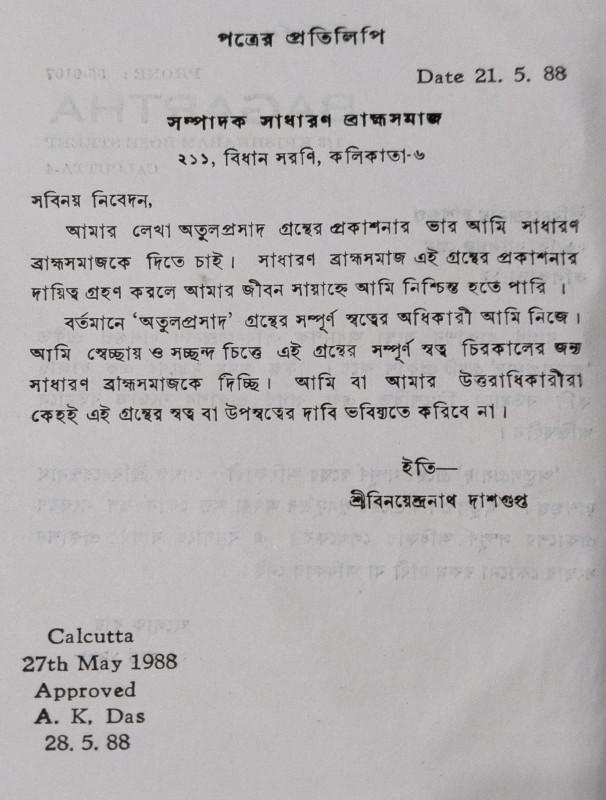 পত্রের প্রতিলিপি
Date 21. 5. 88
সম্পাদক সাধারণ ব্রাহ্মসমাজ
২১১, বিধান সরণি, কলিকাতা-৬
সবিনয় নিবেদন,
আমার লেখা অতুলপ্রসাদ গ্রন্থের প্রকাশনার ভার আমি সাধারণ
ব্রাহ্মসমাজকে দিতে চাই। সাধারণ ব্রাহ্মসমাজ এই গ্রন্থের প্রকাশনার
দায়িত্ব গ্রহণ করলে আমার জীবন সায়াহ্নে আমি নিশ্চিন্ত হতে পারি ।
বর্তমানে ‘অতুলপ্রসাদ’ গ্রন্থের সম্পূর্ণ স্বত্বের অধিকারী আমি নিজে।
আমি স্বেচ্ছায় ও সচ্ছন্দ চিত্তে এই গ্রন্থের সম্পূর্ণ স্বত্ব চিরকালের জন্য
সাধারণ ব্রাহ্মসমাজকে দিচ্ছি। আমি বা আমার উত্তরাধিকারীরা
কেহই এই গ্রন্থের স্বত্ব বা উপস্বত্বের দাবি ভবিষ্যতে করিবে না।
ইতি—
শ্রীবিনয়েন্দ্রনাথ দাশগুপ্ত
Calcutta
27th May 1988
Approved
A. K, Das
28. 5. 88